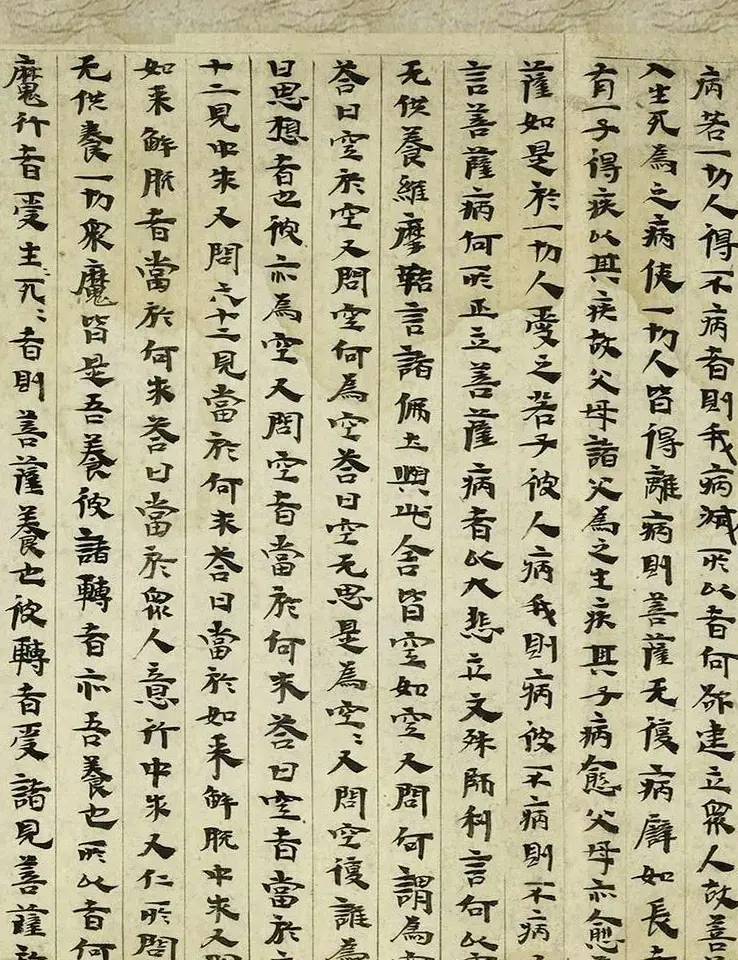 病若一切人得不病者則我病滅所以者何欲建立眾人故善
入生死為之病使一切人皆得離病則菩薩无復病譬如長者
有一子得疾以其疾故父母諸父為之生疾其子病愈父母亦愈
薩如是於一切人愛之若子彼人病我則病彼不病則不病
言菩薩病何所正立菩薩病者以大悲立文殊師利言何以
无供養維摩詰言諸佛土與此舍皆空如空又問何謂為
荅曰空於空又問空何為空荅曰空无思是為空〻又問空復誰為
曰思想者也彼亦為空又問空者當於何求荅曰空者當於
十二見中求又問六十二見當於何求荅曰當於如来解脫中求又
如来解脫者當於何求荅曰當於眾人意行中求又仁所問
无供養一切眾魔皆是吾養彼諸轉者亦吾養也所以者何
魔行者受生死〻者則菩薩養也彼轉者受諸見菩薩於